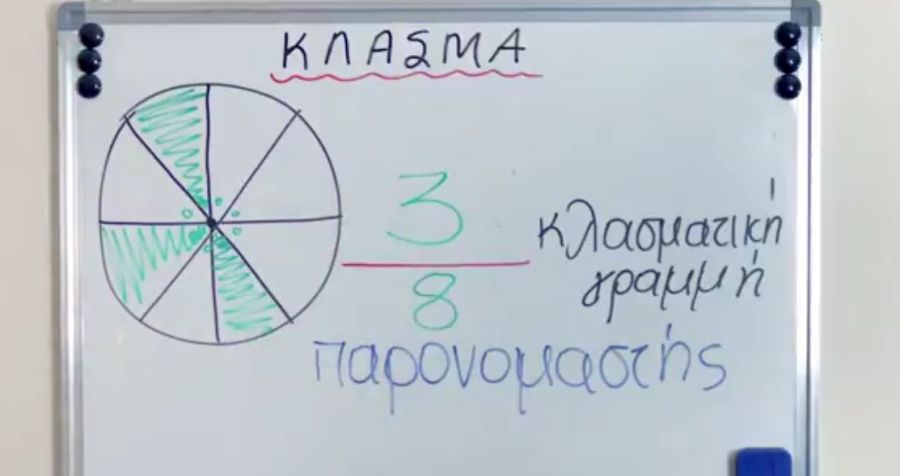 ΚΛΑΣΜΑ
3
8
κλασματική
γραμμή
παρονομαστής